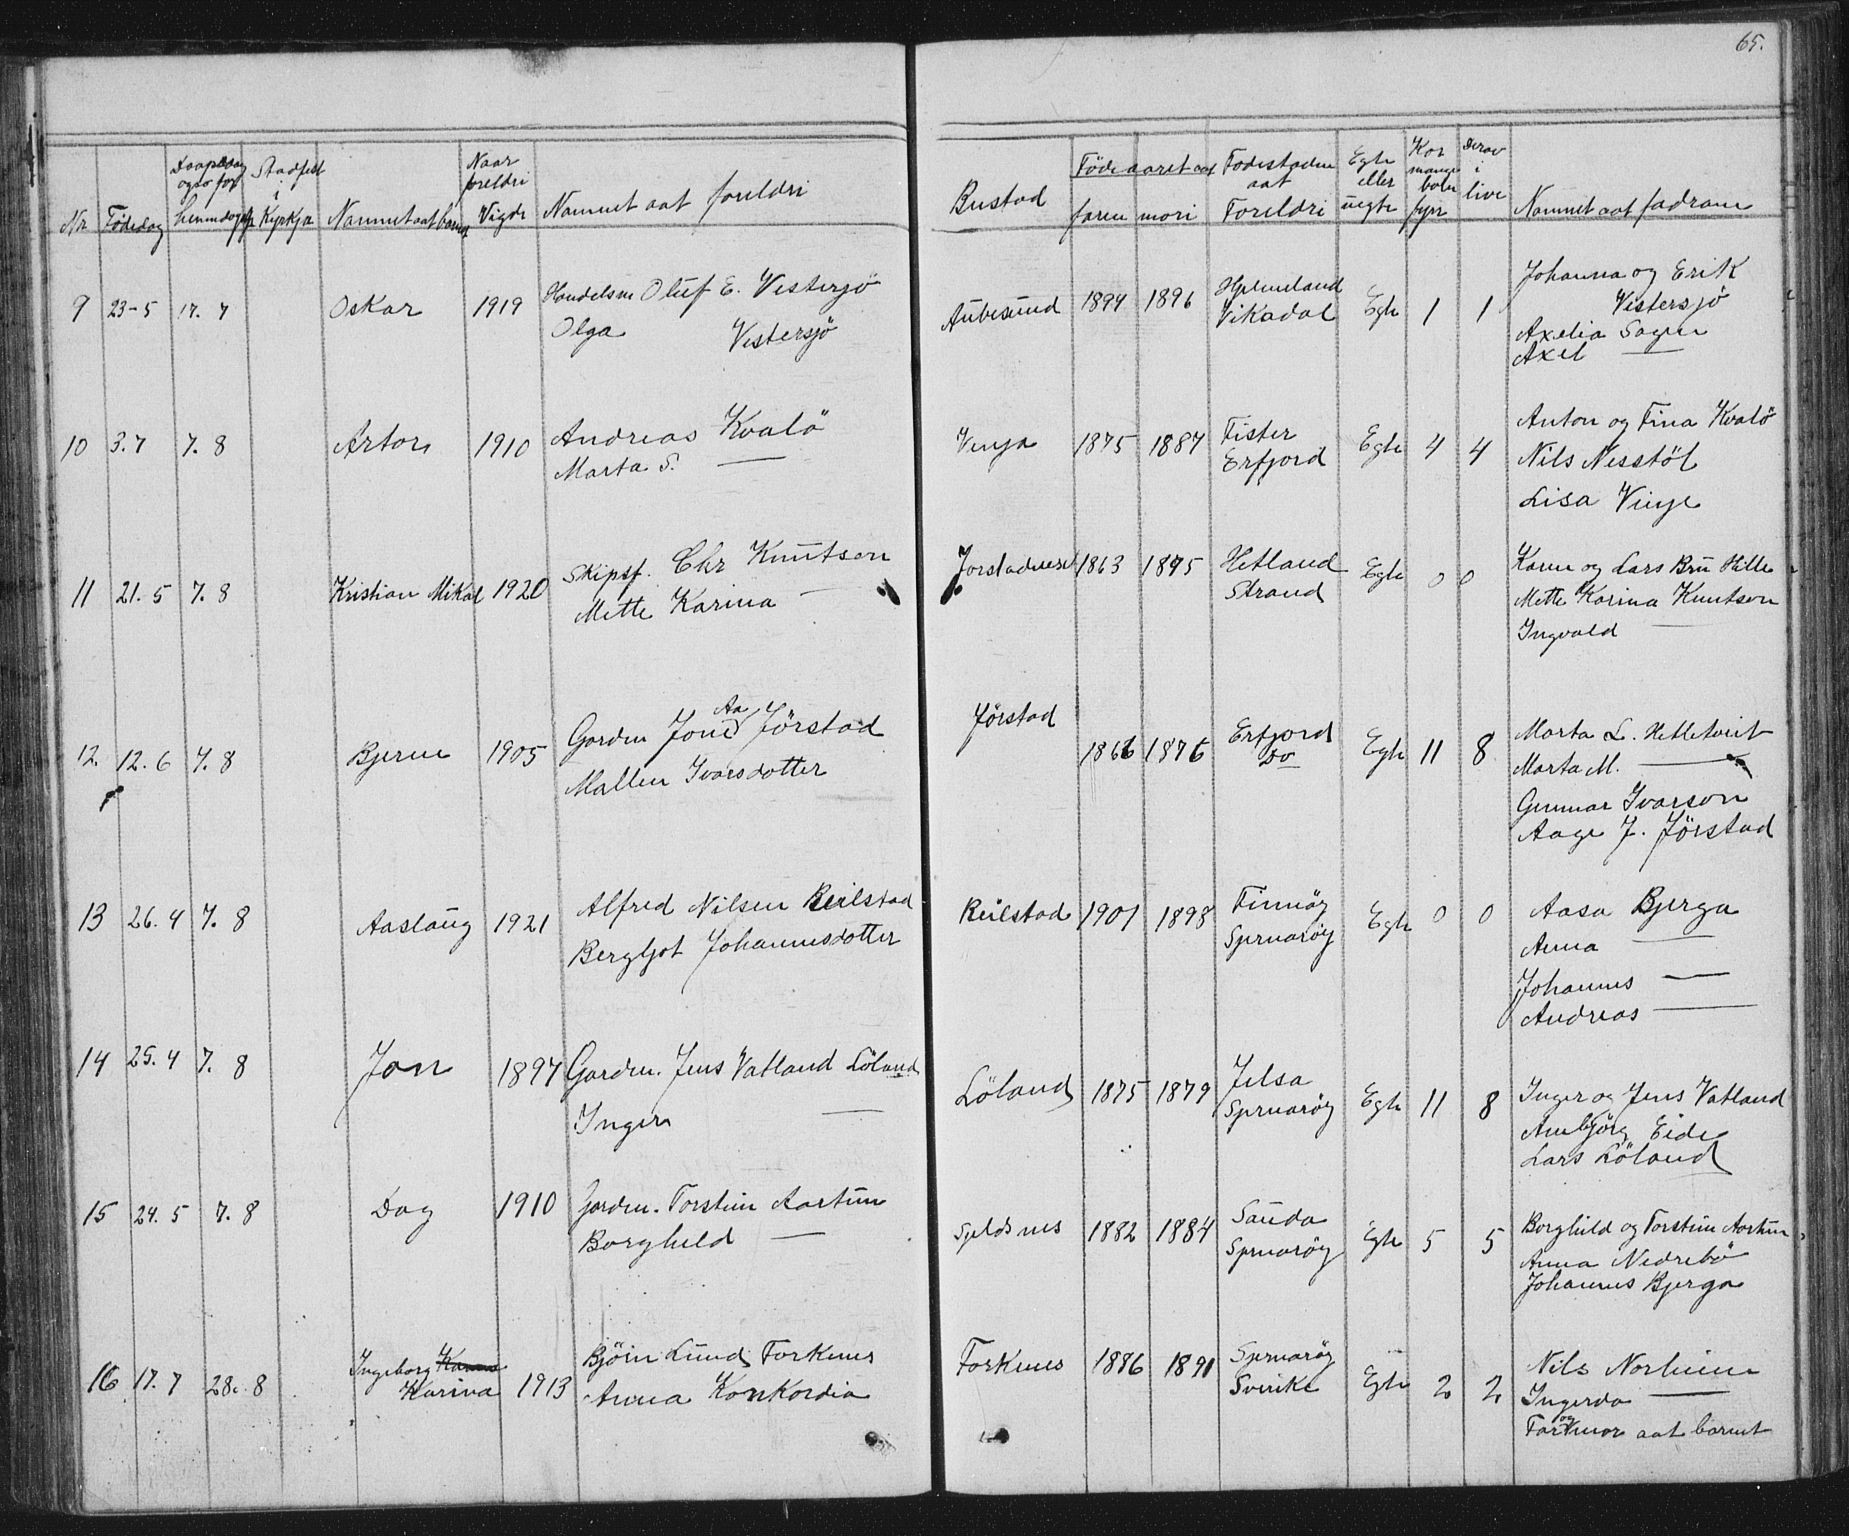 65.
Nr Fødedag Daapsdag ogso for heimedaap Stadfest i Kyrkja Namnet aat barnet Naar foreldri Vigde Namnet aat foreldri
Bustad Födeaaret aat faren mori Fodestaden aat Foreldri Egte eller uegte Kor mange born fyrr Derav i live Namnet aat fadrane
9 23-5 17. 7 Oskar 1919 Handelsm Oluf E. Vestersjö
Olga Vestersjö
Aubesund 1894 1896 Hjelmeland Egte 1 1 Johanna og Erik
Vikadal Vistersjö
Axelia Sagen
Axel —
10 3.7 7. 8 Artor 1910 Andreas Kvalö
Marta S. —
Venja 1875 1887 Fister Egte 4 4 Anton og Fina Kvalö
Erfjord Nils Nesstöl
Lisa Vinje
11 21. 5 7. 8 Kristian Mikal 1920 Skipsf. Chr Knutson
Mette Karina —
Jorstadneset 1863 1895 Hetland Egte 0 0 Karen og Lars Bru Hille
Strand Mette Karina Knutson
Ingvald —
12. 12. 6 7. 8 Bjerne 1905 Garden Jone Aa Jörstad
Mallen Ivarsdotter
Jörstad 1866 1876 Erfjord Egte 11 8 Marta L. Hetletveit
Do Marta M. —
Gunnar Ivarson
Aage J. Jörstad
13 26. 4 7. 8 Aaslaug 1921 Alfred Nilsen Reilstad
Bergljot Johannesdotter
Reilstad 1901 1898 Finnöy Egte 0 0 Aasa Bjerga
Sjernaröy Anna —
Johannes —
Andreas —
14 25. 4 7. 8 Jon 1897 Garden. Jens Vatland Löland
Inger —
Löland 1875 1879 Jelsa Egte 11 8 Inger og Jens Vatland
Sjernaröy Anbjörg Eide
Lars Löland
15 24. 5 7. 8 Dag 1910 Garden. Torstein Aartun
Borghild —
Sjeldsnes 1882 1884 Sauda Egte 5 5 Borghild og Torstein Aartun
Sjernaröy Anna Nedrebö
Johannes Bjerga
16 17. 7 28. 8 Ingeborg Karina 1913 Bjöin Lund, Forkenes
Anna Konkordia
Forkenes 1886 1891 Sjernaröy Egte 2 2 Nils Norheim
Sverike Ingerda —
og
Farmor aat barnet